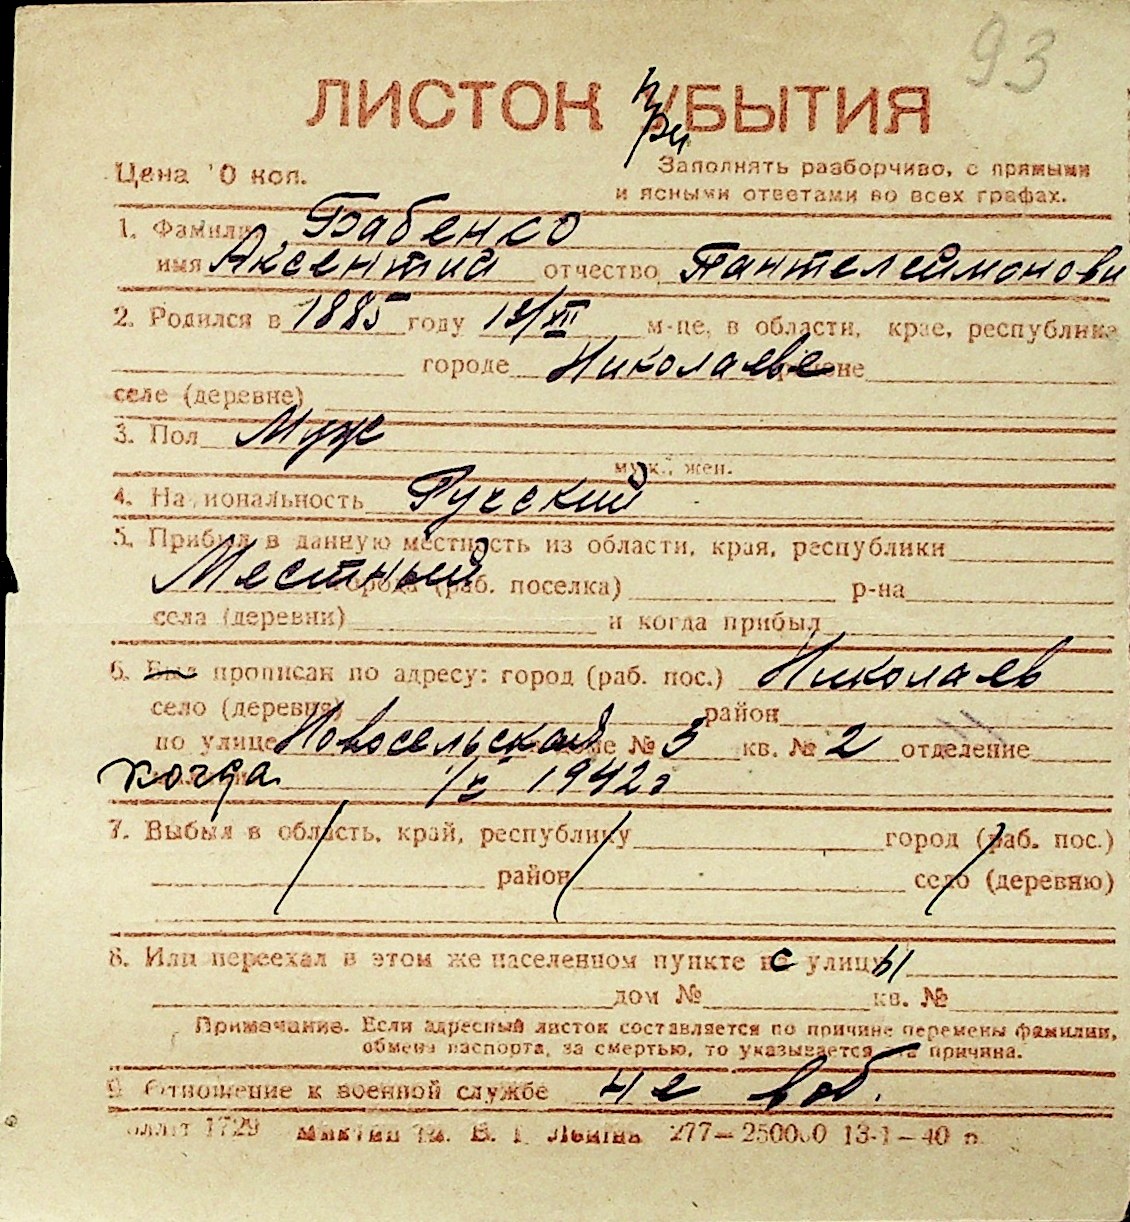 93
ЛИСТОК УБЫТИЯ
при
Цена 10 коп.
Заполнять разборчиво, с прямыми
и ясными ответами во всех графах.
1. Фамилия Бабенко
имя Аксентий отчество Пантелеймонови
2. Родился в 1885 году 12/XII м-це, в области, крае, республике
городе Николаеве районе
селе (деревне)
3. Пол Муж
муж., жен.
4. Национальность Русский
5. Прибыл в данную местность из области, края, республики
Местный города (раб. поселка) р-на
села (деревни) и когда прибыл
6. Был прописан по адресу: город (раб. пос.) Николаев
село (деревня) район
по улице Новосельская доме № 3 кв. № 2 отделение
когда 1942г
7. Выбыл в область, край, республику город (раб. пос.)
район село (деревню)
8. Или переехал в этом же населенном пункте с улицы
дом № кв. №
Примечание. Если адресный листок составляется по причине перемены фамилии,
обмена паспорта, за смертью, то указывается эта причина.
9. Отношение к военной службе не воб.
1729 В. І. Леніна 277—250000 13-1—40 р.